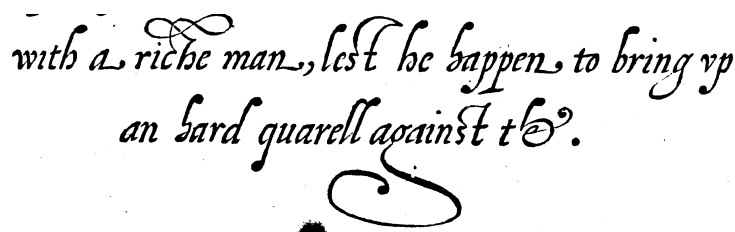 with a riche man, lest he happen to bring vp
an hard quarell against the.